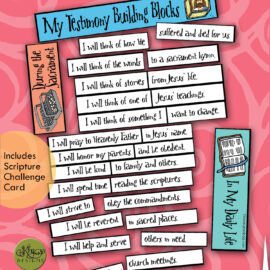 My Testimony Building Blocks
During the Sacrament
I will think of how He suffered and died for us
I will think of the words to a sacrament hymn
I will think of stories from Jesus' life.
I will think of one of Jesus' teachings.
I will think of something I want to change
I will pray to Heavenly Father in Jesus name
I will honor my parents and be obedient.
I will be kind to family and others.
I will spend time reading the scriptures.
I will strive to obey the commandments.
I will be reverent in sacred places
I will help and serve others in need
church meetings.
Includes
Scripture
Challenge
Card
In My Daily Life
DESIGNS